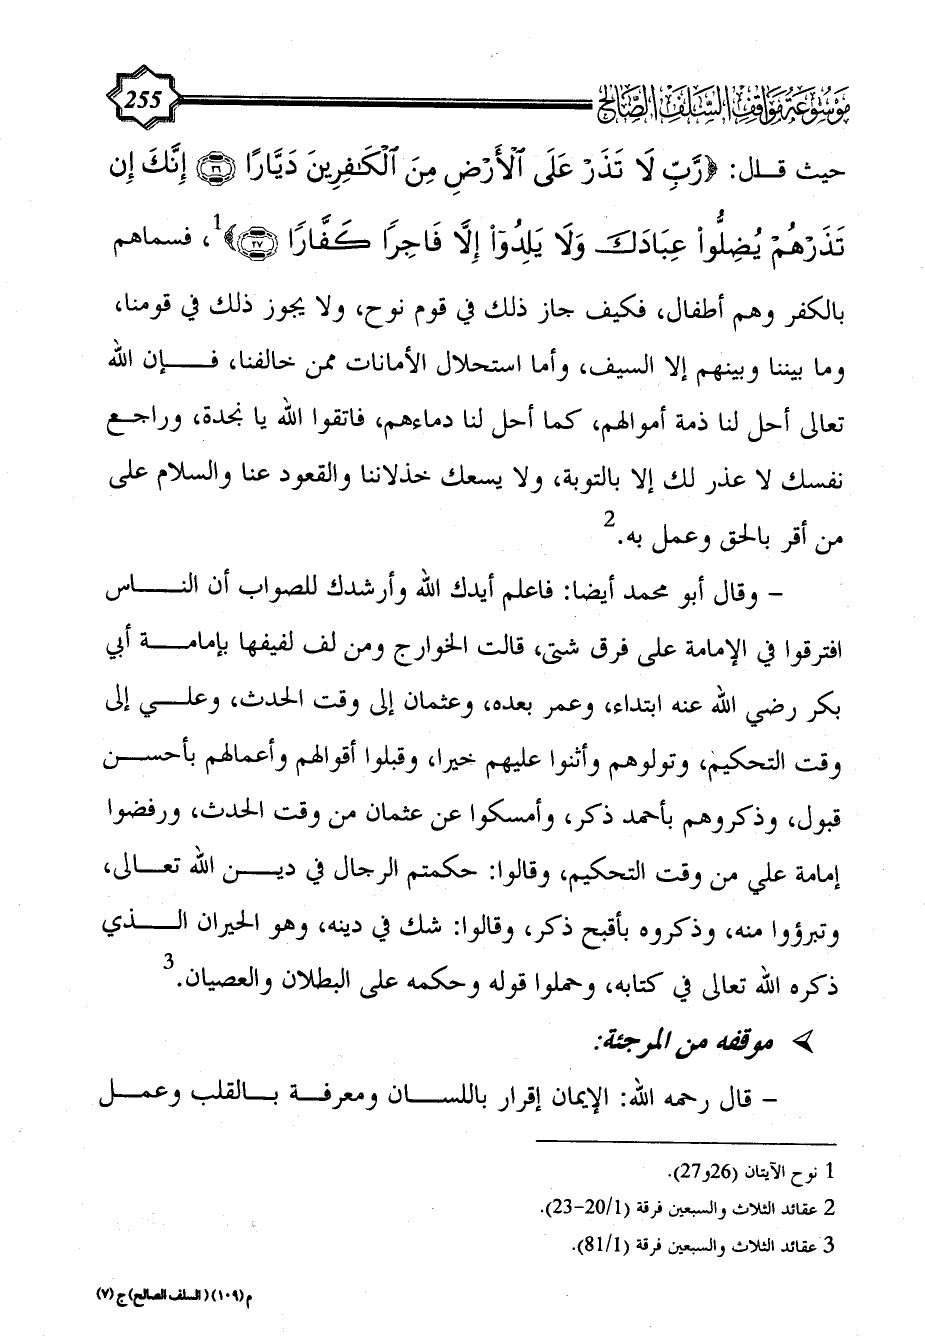 موسوعة مواقف السلف الصالح 255
حيث قـال: ﴿رَّبِّ لَا تَذَرْ عَلَى ٱلْأَرْضِ مِنَ ٱلْكَٰفِرِينَ دَيَّارًا ۝٢٦ إِنَّكَ إِن
تَذَرْهُمْ يُضِلُّوا۟ عِبَادَكَ وَلَا يَلِدُوٓا۟ إِلَّا فَاجِرًا كَفَّارًا ۝٢٧﴾1، فسماهم
بالكفر وهم أطفال، فكيف جاز ذلك في قوم نوح، ولا يجوز ذلك في قومنا،
وما بيننا وبينهم إلا السيف، وأما استحلال الأمانات ممن خالفنا، فـإن الله
تعالى أحل لنا ذمة أموالهم، كما أحل لنا دماءهم، فاتقوا الله يا نجدة، وراجع
نفسك لا عذر لك إلا بالتوبة، ولا يسعك خذلاننا والقعود عنا والسلام على
من أقر بالحق وعمل به.2
– وقال أبو محمد أيضا: فاعلم أيدك الله وأرشدك للصواب أن النـاس
افترقوا في الإمامة على فرق شتى، قالت الخوارج ومن لف لفيفها بإمامـة أبي
بكر رضي الله عنه ابتداء، وعمر بعده، وعثمان إلى وقت الحدث، وعلـي إلى
وقت التحكيم، وتولوهم وأثنوا عليهم خيرا، وقبلوا أقوالهم وأعمالهم بأحسـن
قبول، وذكروهم بأحمد ذكر، وأمسكوا عن عثمان من وقت الحدث، ورفضوا
إمامة علي من وقت التحكيم، وقالوا: حكمتم الرجال في ديـن الله تعـالى،
وتبرؤوا منه، وذكروه بأقبح ذكر، وقالوا: شك في دينه، وهو الحيران الـذي
ذكره الله تعالى في كتابه، وحملوا قوله وحكمه على البطلان والعصيان.3
موقفه من المرجئة:
– قال رحمه الله: الإيمان إقرار باللسـان ومعرفـة بـالقلب وعمـل
1 نوح الآيتان (26و27).
2 عقائد الثلاث والسبعين فرقة (20/1-23).
3 عقائد الثلاث والسبعين فرقة (81/1).
م (١٠٩) (السلف الصالح) ج (٧)